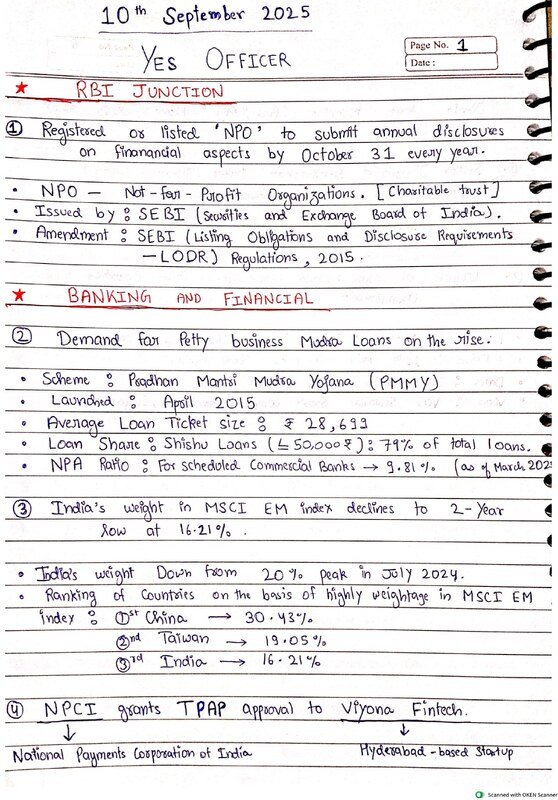 10th September 2025
YES OFFICER
Page No. 1
Date :
★ RBI JUNCTION
① Registered or listed 'NPO' to submit annual disclosures
on finanancial aspects by October 31 every year.
• NPO – Not-for-Profit Organizations. [Charitable trust]
• Issued by : SEBI (Securities and Exchange Board of India).
• Amendment : SEBI (Listing Obligations and Disclosure Requirements
– LODR) Regulations, 2015.
★ BANKING AND FINANCIAL
② Demand for Petty business Mudra Loans on the rise.
• Scheme : Pradhan Mantri Mudra Yojana (PMMY)
• Launched : April 2015
• Average Loan Ticket size : ₹ 28,699
• Loan Share : Shishu Loans (≤ 50,000 ₹) : 79% of total loans.
• NPA Ratio : For scheduled Commercial Banks → 9.81% (as of March 202
③ India's weight in MSCI EM index declines to 2-Year
low at 16.21%.
• India's weight Down from 20% peak in July 2024.
• Ranking of Countries on the basis of highly weightage in MSCI EM
index : ①st China → 30.43%
②nd Taiwan → 19.05%
③rd India → 16.21%
④ NPCI grants TPAP approval to Viyona Fintech.
↓ ↓
National Payments Corporation of India Hyderabad-based Startup
Scanned with OKEN Scanner